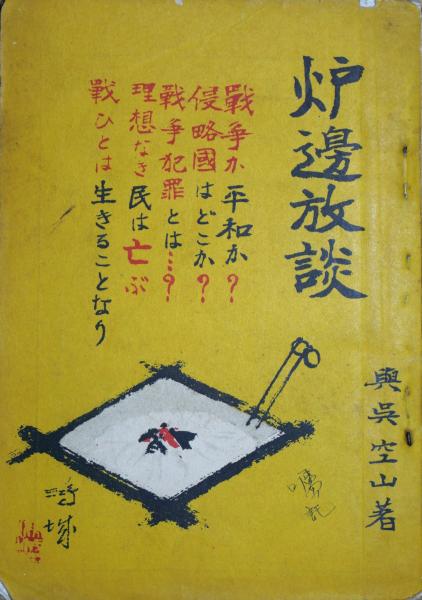 炉邊放談
戰争か平和か?
侵略國はどこか?
戰争犯罪とは…?
理想なき民は亡ぶ
戰ひとは生きることなり
與呉空山著